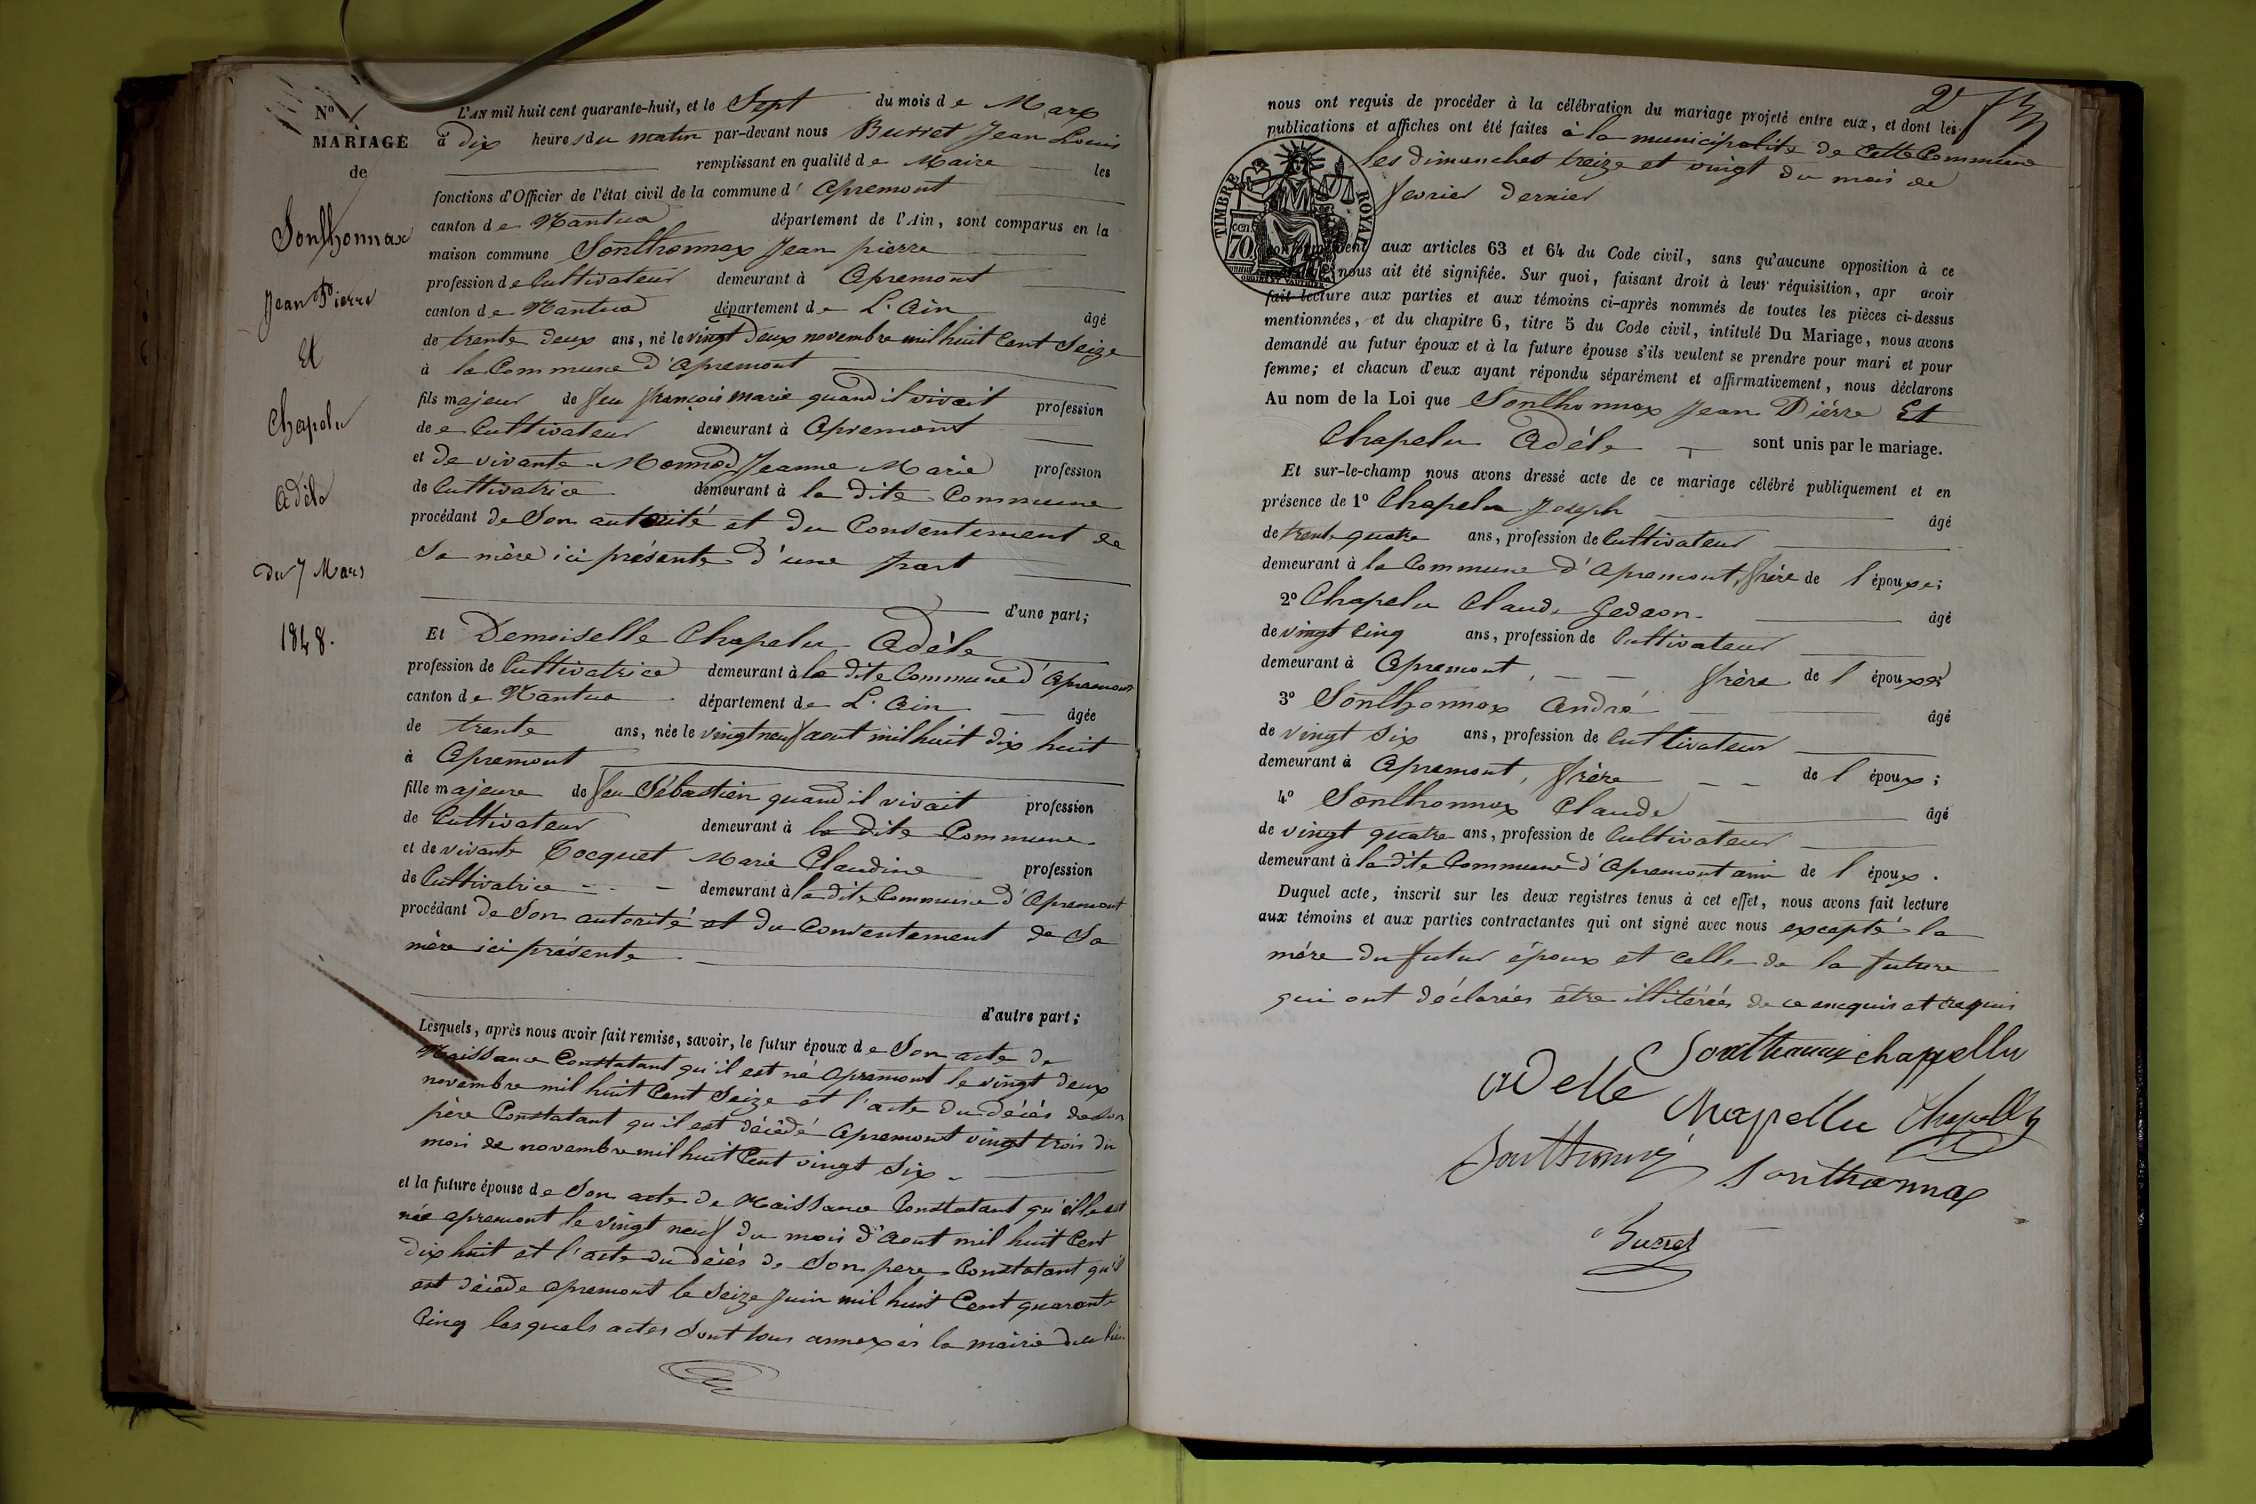 N° 1
MARIAGE
de
Sonthonnax
Jean Pierre
Et
Chapelu
Adèle
du 7 Mars
1848.
L'AN mil huit cent quarante-huit, et le Sept du mois de Mars
à Dix heures du matin par-devant nous Burret Jean Louis
remplissant en qualité de Maire les
fonctions d'Officier de l'état civil de la commune d' Apremont
canton de Nantua département de l'Ain, sont comparus en la
maison commune Sonthonnax Jean pierre
profession de Cultivateur demeurant à Apremont
canton de Nantua département de L'Ain âgé
de trente deux ans, né le vingt Deux novembre mil huit Cent Seize
à la Commune d'Apremont
fils majeur de feu françois marie quand il vivait profession
de e Cultivateur demeurant à Apremont
et de vivante Monnod Jeanne Marie profession
de Cultivatrice demeurant à la dite Commune
procédant de Son autorité et du Consentement de
Sa mère ici présente d'une part
d'une part;
Et Demoiselle Chapelu Adèle
profession de Cultivatrice demeurant à la dite Commune d'Apremont
canton de Nantua département de L'Ain âgée
de trente ans, née le vingt neuf aout mil huit dix huit
à Apremont
fille majeure de feu Sébastien quand il vivait profession
de Cultivateur demeurant à la dite Commune
et de vivante Cocquet Marie Claudine profession
de Cultivatrice demeurant à la dite Commune d'Apremont
procédant de Son autorité et du Consentement de Sa
mère ici présente
d'autre part;
Lesquels, après nous avoir fait remise, savoir, le futur époux de Son acte de
Naissance Constatant qu'il est né Apremont le vingt deux
novembre mil huit Cent Seize et l'acte du décès de son
père Constatant qu'il est décédé Apremont vingt trois du
mois de novembre mil huit Cent vingt Six
et la future épouse de Son acte de Naissance Constatant qu'elle est
née apremont le vingt neuf du mois d'Aout mil huit Cent
dix huit et l'acte du décès de Son pere Constatant qu'il
est décéde apremont le Seize Juin mil huit Cent quarante
Cinq lesquels actes Sont tous annexés la mairie du lieu
2 
nous ont requis de procéder à la célébration du mariage projeté entre eux, et dont les
publications et affiches ont été faites à la municipalité de cette Commune
les dimanches treize et vingt du mois de
fevrier dernier
TIMBRE ROYAL
70 cen
conformément aux articles 63 et 64 du Code civil, sans qu'aucune opposition à ce
mariage nous ait été signifiée. Sur quoi, faisant droit à leur réquisition, apr avoir
fait lecture aux parties et aux témoins ci-après nommés de toutes les pièces ci-dessus
mentionnées, et du chapitre 6, titre 5 du Code civil, intitulé Du Mariage, nous avons
demandé au futur époux et à la future épouse s'ils veulent se prendre pour mari et pour
femme; et chacun d'eux ayant répondu séparément et affirmativement, nous déclarons
Au nom de la Loi que Sonthonnax Jean Pièrre Et
Chapelu Adèle sont unis par le mariage.
Et sur-le-champ nous avons dressé acte de ce mariage célébré publiquement et en
présence de 1° Chapelu Joseph âgé
de trente quatre ans, profession de Cultivateur
demeurant à la Commune d'Apremont, frère de l'épouxe;
2° Chapelu Claude Gedeon âgé
de vingt Cinq ans, profession de Cultivateur
demeurant à Apremont, frère de l'épouxe;
3° Sonthonnax André âgé
de vingt Six ans, profession de Cultivateur
demeurant à Apremont, frère de l'époux;
4° Sonthonnax Claude âgé
de vingt quatre ans, profession de Cultivateur
demeurant à la dite Commune d'Apremont ami de l'époux.
Duquel acte, inscrit sur les deux registres tenus à cet effet, nous avons fait lecture
aux témoins et aux parties contractantes qui ont signé avec nous excepté la
mère du futur époux et celle de la future
qui ont déclarées être illitérées de ce enequis et requis
Sonthonnax chappellu
adelle
Chapellu Chapellu
Sonthonnax Sonthonnax
Burret